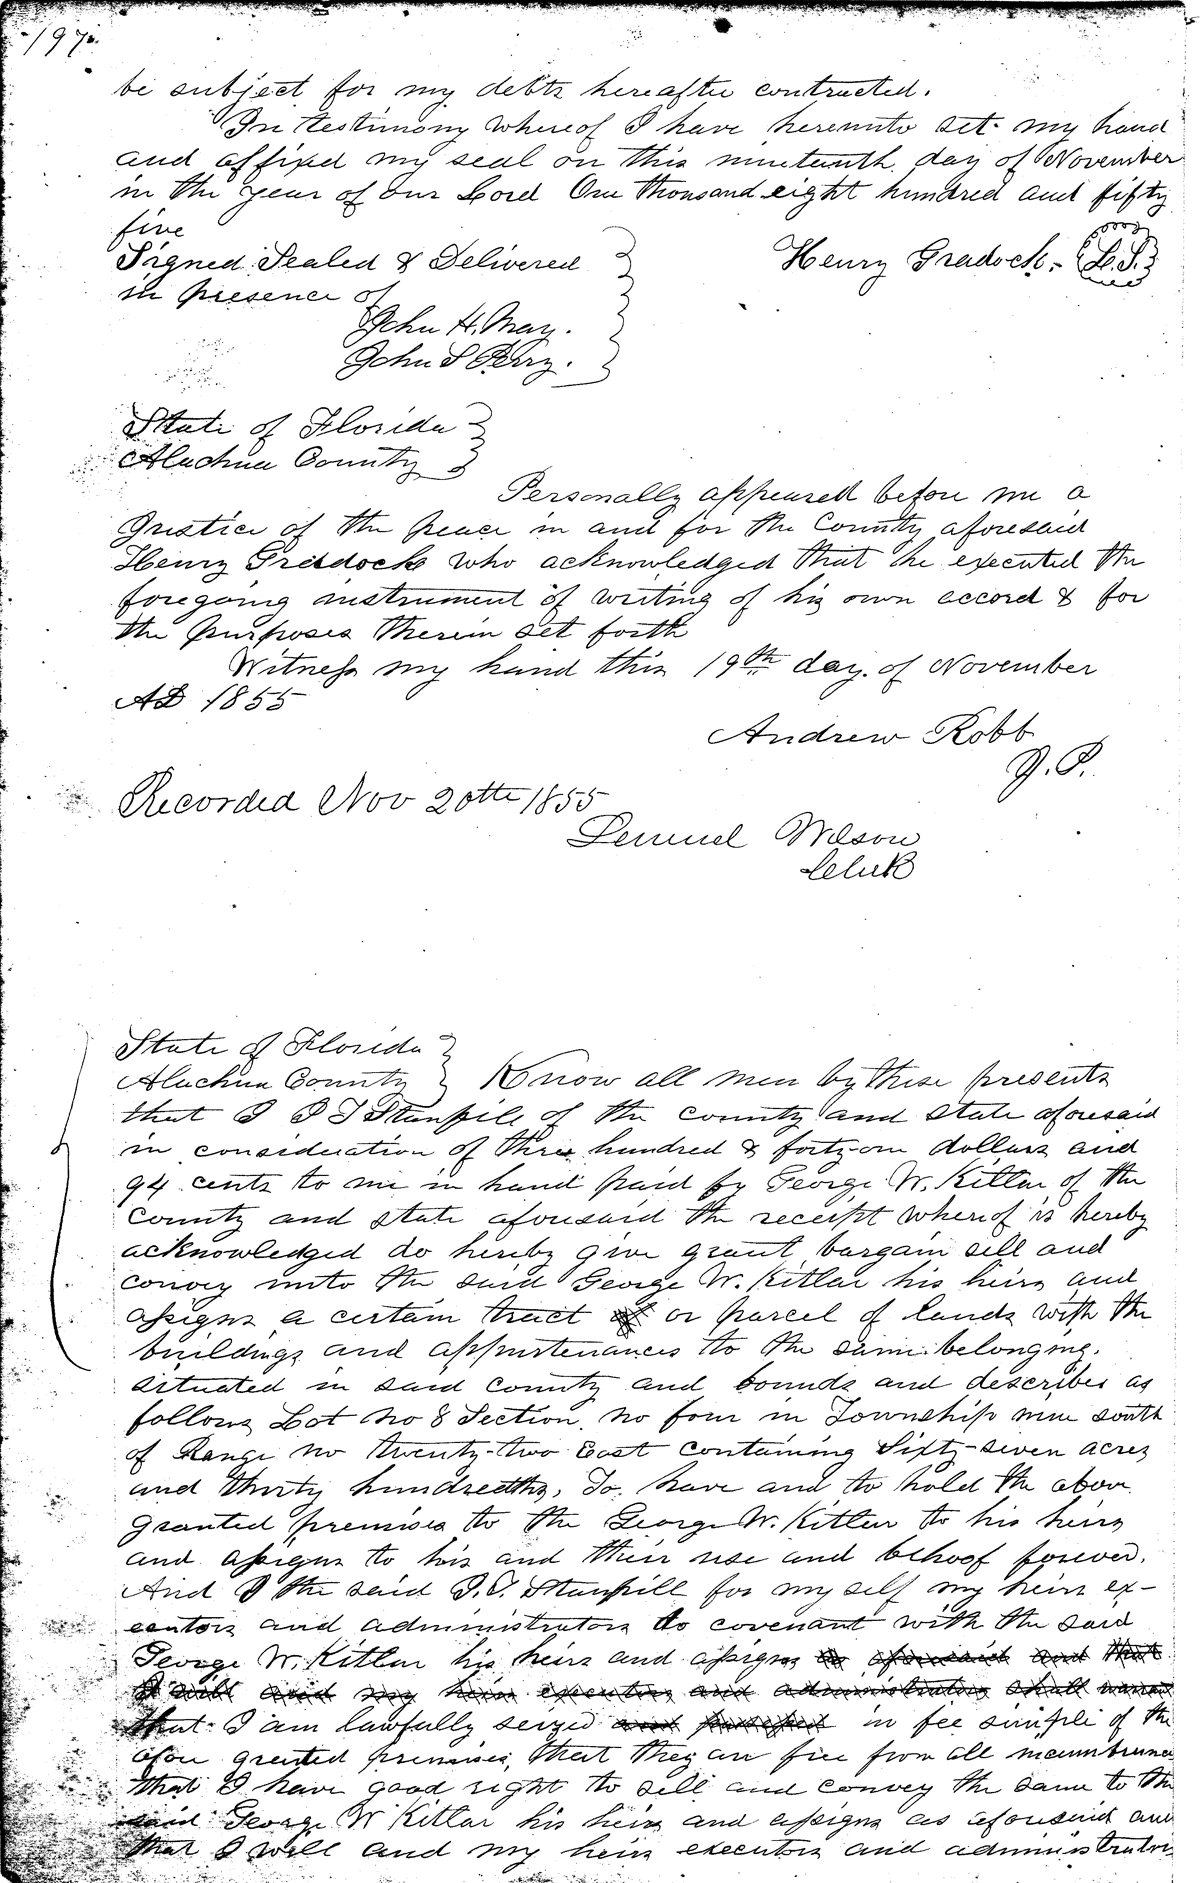 197.
be subject for my debts hereafter contracted.
In testimony whereof I have hereunto set my hand
and affixed my seal on this nineteenth day of November
in the year of our Lord One thousand eight hundred and fifty
five
Signed Sealed & Delivered
in presence of
Henry Gradock. L.S.
John H. May.
John S Perry.
State of Florida
Alachua County
Personally appeared before me a
Justice of the peace in and for the County aforesaid
Henry Gradock who acknowledged that he executed the
foregoing instrument of writing of his own accord & for
the purposes therein set forth
Witness my hand this 19th day of November
AD 1855
Andrew Robb
J.P.
Recorded Nov 20th 1855
Lemuel Wilson
Clerk
State of Florida
Alachua County Know all men by these presents
that I Stanfill of the county and state aforesaid
in consideration of three hundred & forty-one dollars and
94 cents to me in hand paid by George W. Kitler of the
county and state aforesaid the receipt whereof is hereby
acknowledged do hereby give grant bargain sell and
convey unto the said George W. Kitlar his heirs and
assigns a certain tract of or parcel of lands with the
buildings and appurtenances to the same belonging.
situated in said county and bounds and describes as
follows Lot No 8 Section no four in Township nine south
of Range no twenty-two East containing Sixty-seven acres
and thirty hundredths, To have and to hold the above
granted premises to the George W. Kitler to his heirs
and assigns to his and their use and behoof forever.
And I the said Stanfill for my self my heirs ex-
ecutors and administrators do covenant with the said
George W. Kitler his heirs and assigns as aforesaid and that
I will and my heirs executors and administrators shall warran
that I am lawfully seized and possessed in fee simple of the
afore granted premises, that they are free from all incumbrance
that I have good right to sell and convey the same to the
said George W Kitlar his heirs and assigns as aforesaid and
that I will and my heirs executors and administrators